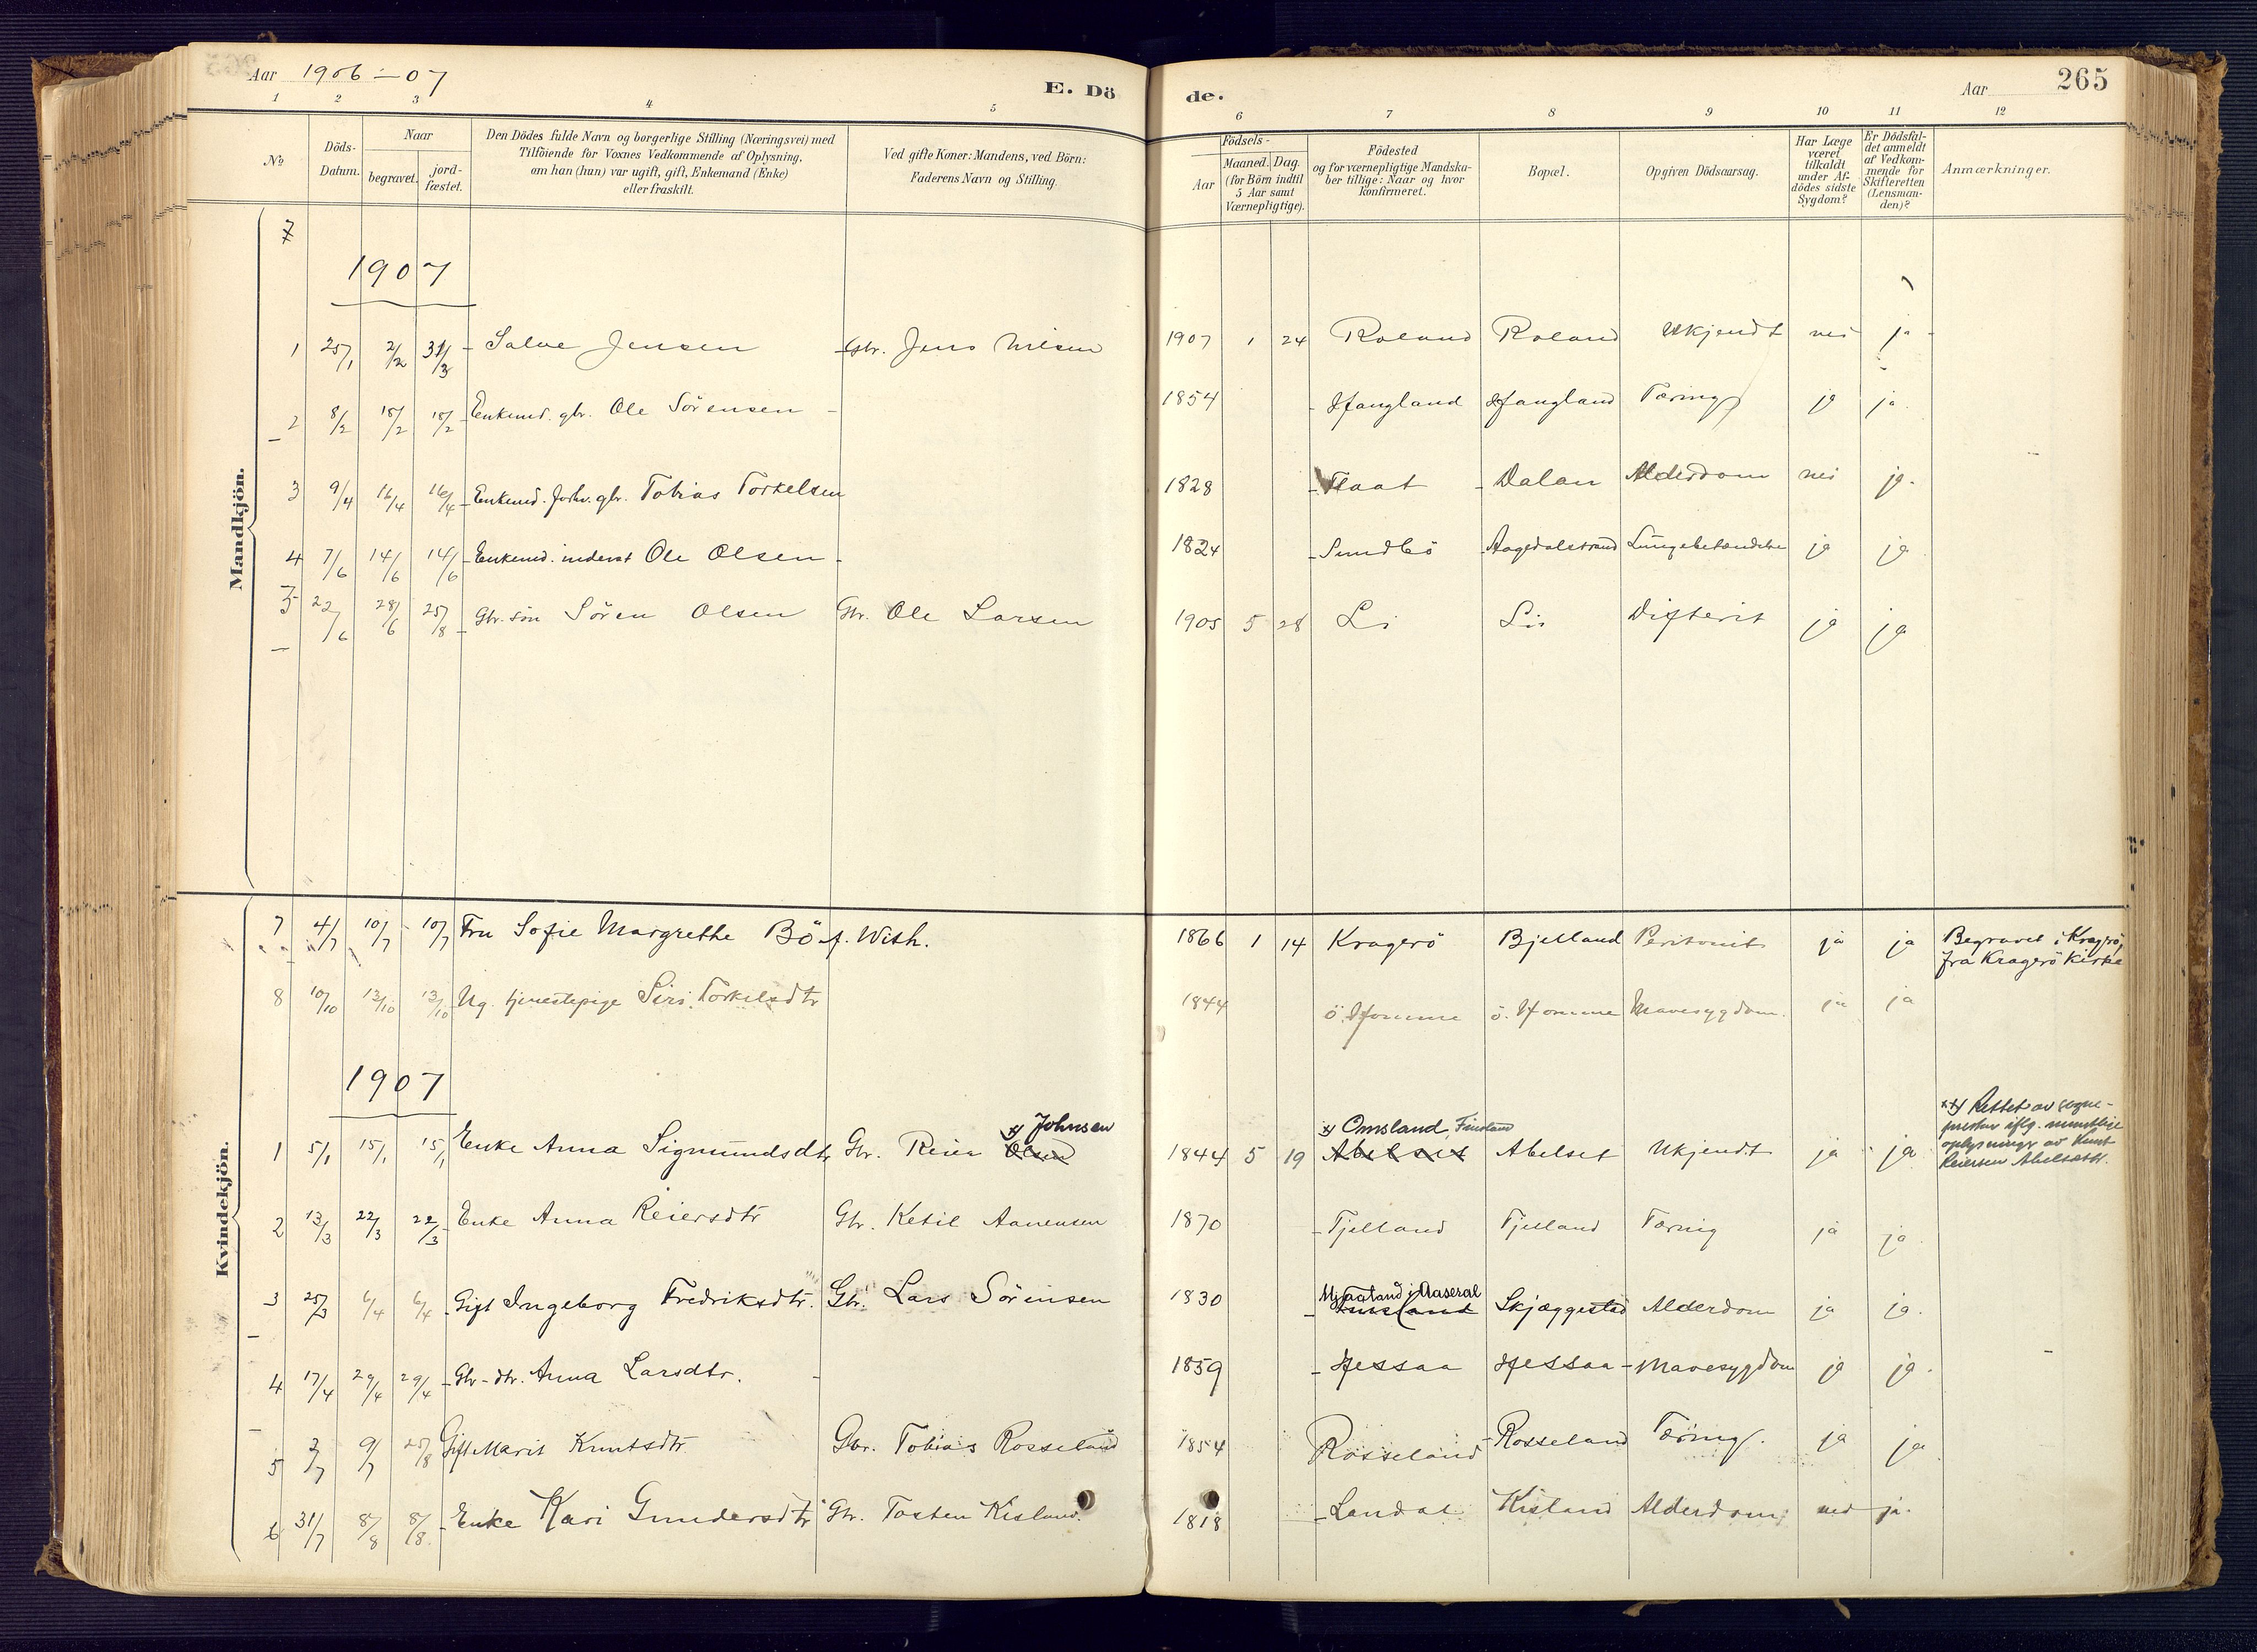 Aar 1906-07
E. Dö
de.
Aar
265
1 2 3 4 5 6 7 8 9 10 11 12
No
Döds-Datum.
Naar
begravet.
jord-fæstet.
Den Dödes fulde Navn og borgerlige Stilling (Næringsvei) med
Tilföiende for Voxnes Vedkommende af Oplysning,
om han (hun) var ugift, gift, Enkemand (Enke)
eller fraskilt.
Ved gifte Koner: Mandens, ved Börn:
Faderens Navn og Stilling.
Födsels-
Aar
Maaned. Dag.
(for Börn indtil
5 Aar samt
Værnepligtige).
Födested
og for værnepligtige Mandska-
ber tillige: Naar og hvor
konfirmeret.
Bopæl.
Opgiven Dödsaarsag.
Har Læge
været
tilkaldt
under Af-
dödes sidste
Sygdom?
Er Dödsfal-
det anmeldt
af Vedkom-
mende for
Skifteretten
(Lensman-
den)?
Anmærkninger.
Mandkjön.
7
1907
1 25/1 2/2 31/3 Salve Jensen Gbr. Jens Nilsen 1907 1 24 Roland Roland Ukjendt nei ja
2 8/2 15/2 15/2 Enkemd. gbr. Ole Sörensen 1854 Haugland Haugland Tæring ja ja
3 9/4 16/4 16/4 Enkemd. forhv. gbr. Tobias Torkelsen 1828 Flaat Dalan Alderdom nei ja.
4 7/6 14/6 14/6 Enkemd. inderst Ole Olsen 1824 Sundbö Aagedalstrand Lungebetændelse ja ja
5 22/6 28/6 25/8 Gbr. sön Sören Olsen Gbr. Ole Larsen 1905 5 28 Li Li Difterit ja ja
Kvindekjön.
7 4/7 10/7 10/7 Fru Sofie Margrethe Bö f. With. 1866 1 14 Kragerö Bjelland Peritonit ja ja Begravet i Kragerö,
fra Kragerö Kirke
8 10/10 13/10 13/10 Ug. tjenestepige Siri Torkelsdtr 1844 ö. Homme ö. Homme Mavesygdom. ja ja
1907
x) Johnsen
x) Omsland, Finsland
1 5/1 15/1 15/1 Enke Anna Sigmundsdtr Gbr. Reier Olsen 1844 5 19 Abelset Abelset Ukjendt ja ja
x+x) Rettet av sogne-
presten iflg. muntlige
oplysninger av Knut
Reiersen Abelseth.
2 13/3 22/3 22/3 Enke Anna Reiersdtr Gbr. Ketil Aanensen 1870 Fjelland Fjelland Tæring ja ja
Mjaaland i Aaseral
3 25/3 6/4 6/4 Gift Ingeborg Fredriksdtr. Gbr. Lars Sörensen 1830 Skjæggested Alderdom ja ja.
4 17/4 29/4 29/4 Gbr-dtr. Anna Larsdtr. 1859 Hessaa Hessaa Mavesygdom ja ja.
5 2/7 9/7 25/8 Gift Marit Knutsdtr Gbr. Tobias Rosseland 1854 Rosseland Rosseland Tæring. ja ja
6 31/7 8/8 8/8 Enke Kari Gundersdtr Gbr. Tosten Kisland. 1818 Landal Kisland Alderdom nei ja.